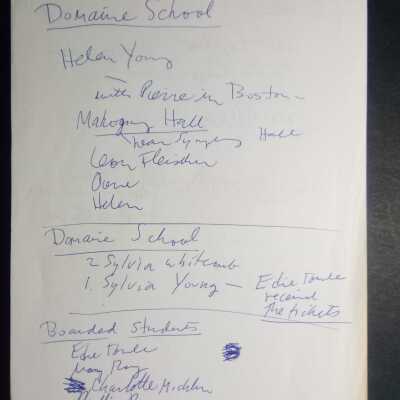 Domaine School
Helen Young
with Pierre in Boston -
Mahogany Hall
near Symphony Hall
Leon Fleischer
Helen
Domaine School
2 Sylvia Whitcomb
1. Sylvia Young — Edie
received
the tickets
Boarded Students
Edie
May Roy
Charlotte